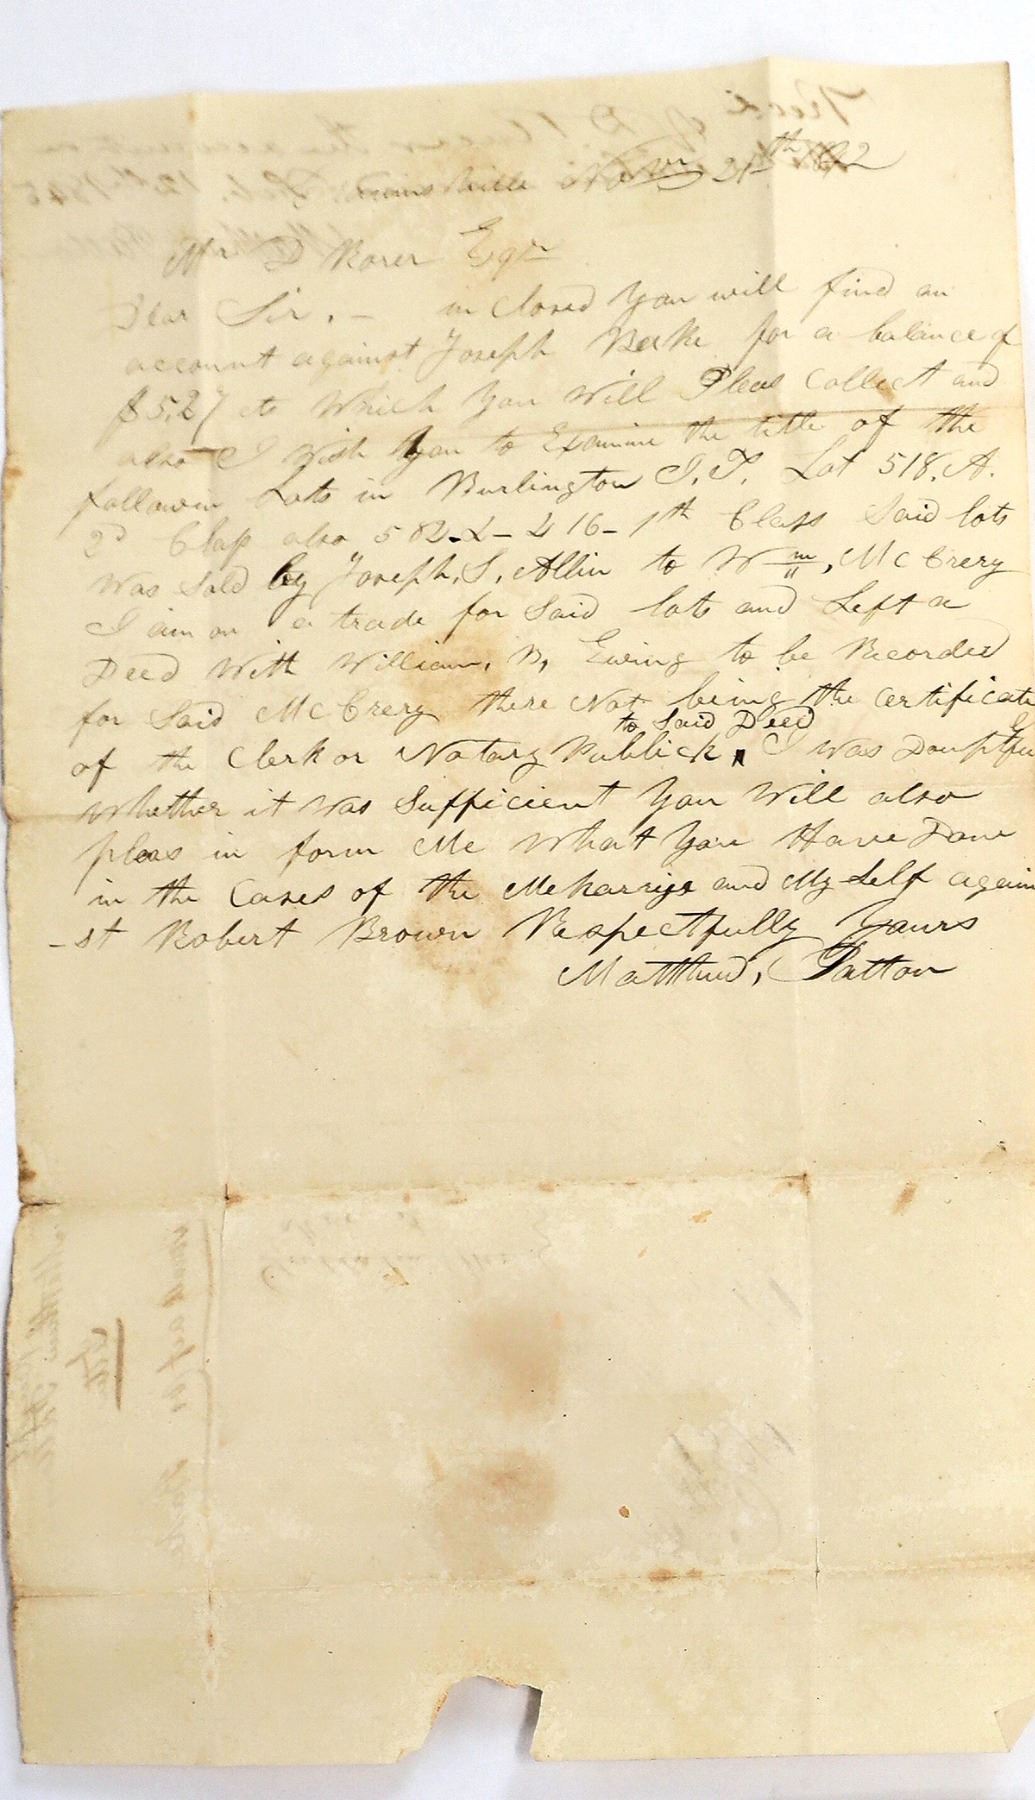 Novr 21th 1842
Mr D Rorer Esqr
Dear Sir, - in closed you will find an
account against Joseph for a balance of
$5,27 cts Which you Will Pleas Collect and
also I Wish you to Examine the title of the
followin Lots in Burlington I. T. Lot 518. A.
2d Class also 582 - 416 - 1th Class Said lots
Was Sold by Joseph, S, Allin to Wm, McCrery
I am on a trade for Said lots and Left a
Deed With William, B, Ewing to be Recorded
for Said McCrery there Not being the Certificate
to Said Deed
of the Clerk or Notary Publick, I was Doupfu
Whether it Was Sufficient you Will also
pleas in form Me What you Have Done
in the Cases of the and My Self again
-st Robert Brown Respectfully Yours
Matthew, Patton